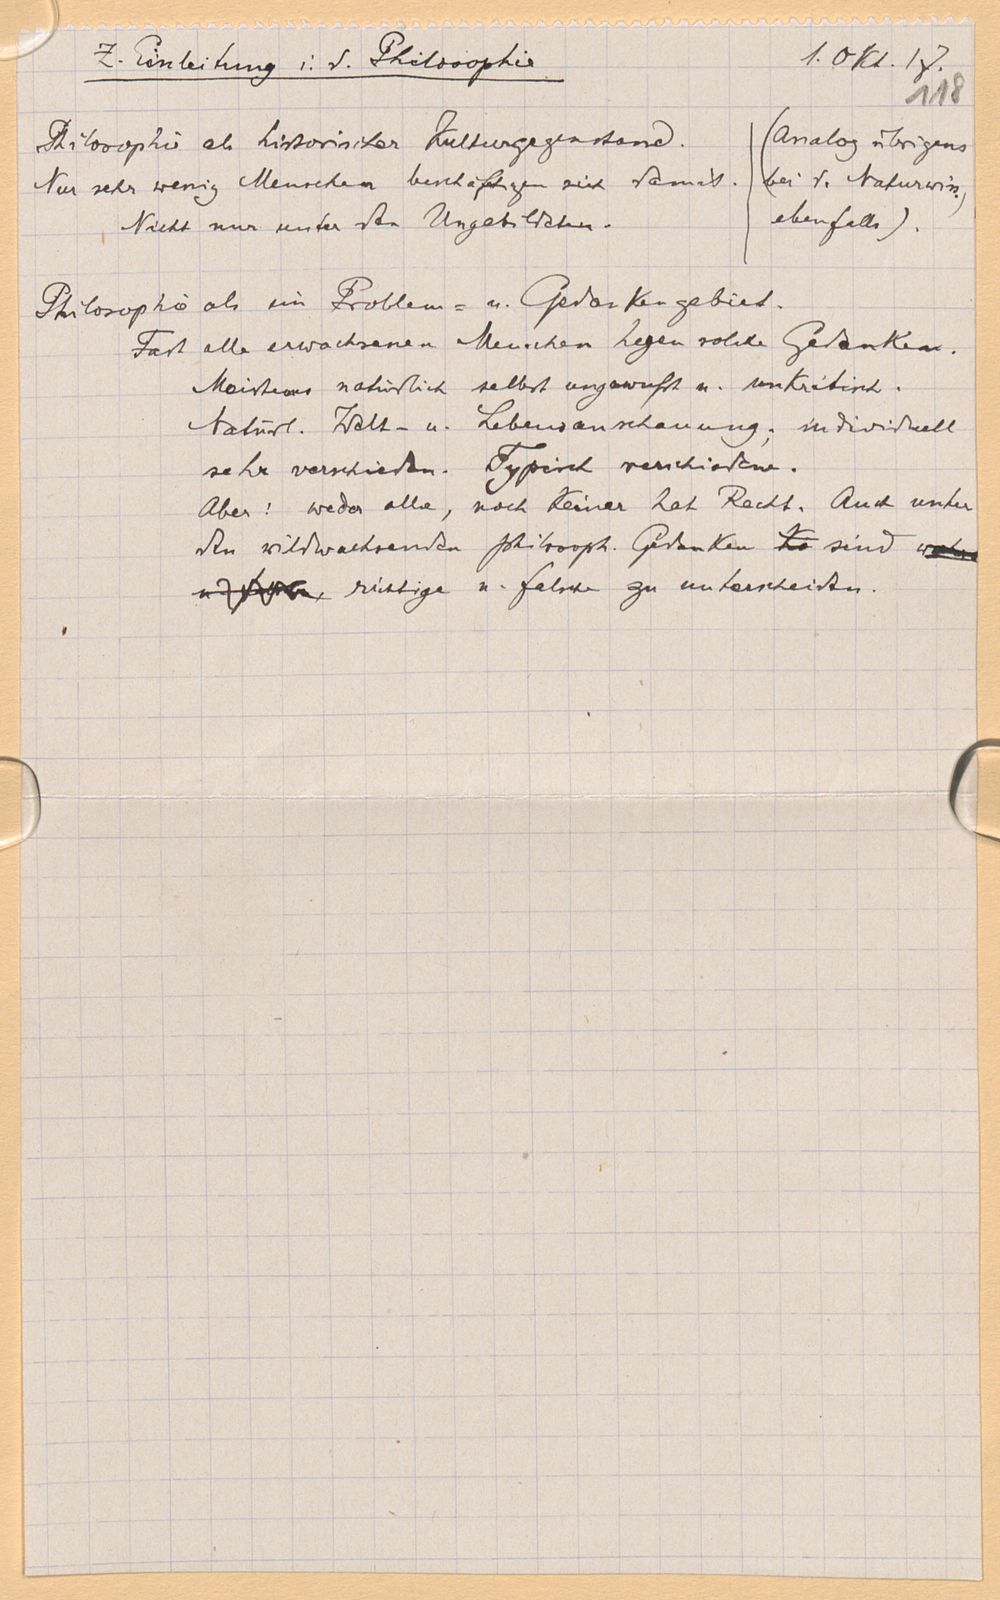 Z. Einleitung i. d. Philosophie
1. Okt. 17.
118
Philosophie als historischer Kulturgegenstand.
Nur sehr wenig Menschen beschäftigen sich damit.
Nicht nur unter den Ungebildeten.
(Analog übrigens
bei d. Naturwiss.,
ebenfalls).
Philosophie als ein Problem- u. Gedankengebiet.
Fast alle erwachsenen Menschen hegen solche Gedanken.
Meistens natürlich selbst ungewußt u. unkritisch.
Natürl. Welt- u. Lebensanschauung; individuell
sehr verschieden. Typisch verschiedene.
Aber! weder alle, noch keiner hat Recht. Auch unter
den wildwachsenden philosoph. Gedanken sind
richtige u. falsche zu unterscheiden.